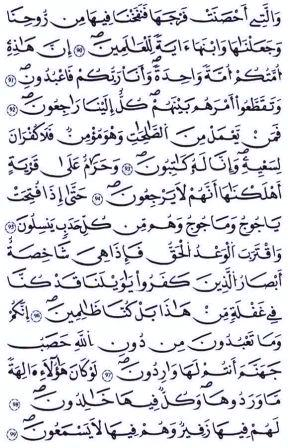 وَالَّتِي أَحْصَنَتْ فَرْجَهَا فَنَفَخْنَا فِيهَا مِن رُّوحِنَا
وَجَعَلْنَاهَا وَابْنَهَا ءَايَةً لِّلْعَالَمِينَ ۝٩٠ إِنَّ هَٰذِهِ
أُمَّتُكُمْ أُمَّةً وَاحِدَةً وَأَنَا رَبُّكُمْ فَاعْبُدُونِ ۝٩١
وَتَقَطَّعُوا أَمْرَهُم بَيْنَهُمْ كُلٌّ إِلَيْنَا رَاجِعُونَ ۝٩٢
فَمَن يَعْمَلْ مِنَ الصَّالِحَاتِ وَهُوَ مُؤْمِنٌ فَلَا كُفْرَانَ
لِسَعْيِهِ وَإِنَّا لَهُ كَاتِبُونَ ۝٩٣ وَحَرَامٌ عَلَىٰ قَرْيَةٍ
أَهْلَكْنَاهَا أَنَّهُمْ لَا يَرْجِعُونَ ۝٩٤ حَتَّىٰ إِذَا فُتِحَتْ
يَاجُوجُ وَمَاجُوجُ وَهُم مِّن كُلِّ حَدَبٍ يَنسِلُونَ ۝٩٥
وَاقْتَرَبَ الْوَعْدُ الْحَقُّ فَإِذَا هِيَ شَاخِصَةٌ
أَبْصَارُ الَّذِينَ كَفَرُوا يَاوَيْلَنَا قَدْ كُنَّا
فِي غَفْلَةٍ مِّنْ هَٰذَا بَلْ كُنَّا ظَالِمِينَ ۝٩٦ إِنَّكُمْ
وَمَا تَعْبُدُونَ مِن دُونِ اللَّهِ حَصَبُ
جَهَنَّمَ أَنتُمْ لَهَا وَارِدُونَ ۝٩٧ لَوْ كَانَ هَٰؤُلَاءِ ءَالِهَةً
مَّا وَرَدُوهَا وَكُلٌّ فِيهَا خَالِدُونَ ۝٩٨
لَهُمْ فِيهَا زَفِيرٌ وَهُمْ فِيهَا لَا يَسْمَعُونَ ۝٩٩